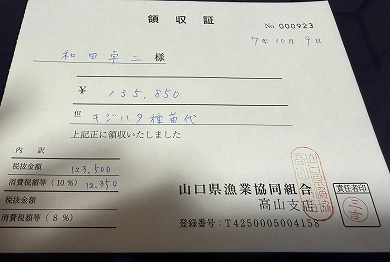 領収証
No. 000923
7年10月9日
和田卓二様
¥135,850
但 キジハタ種苗代
上記正に領収いたしました
内訳
税抜金額 123,500
消費税額等(10%) 12,350
税抜金額
消費税額等(8%)
山口県漁業協同組合
高山支店
責任者印
登録番号:T4250005004158